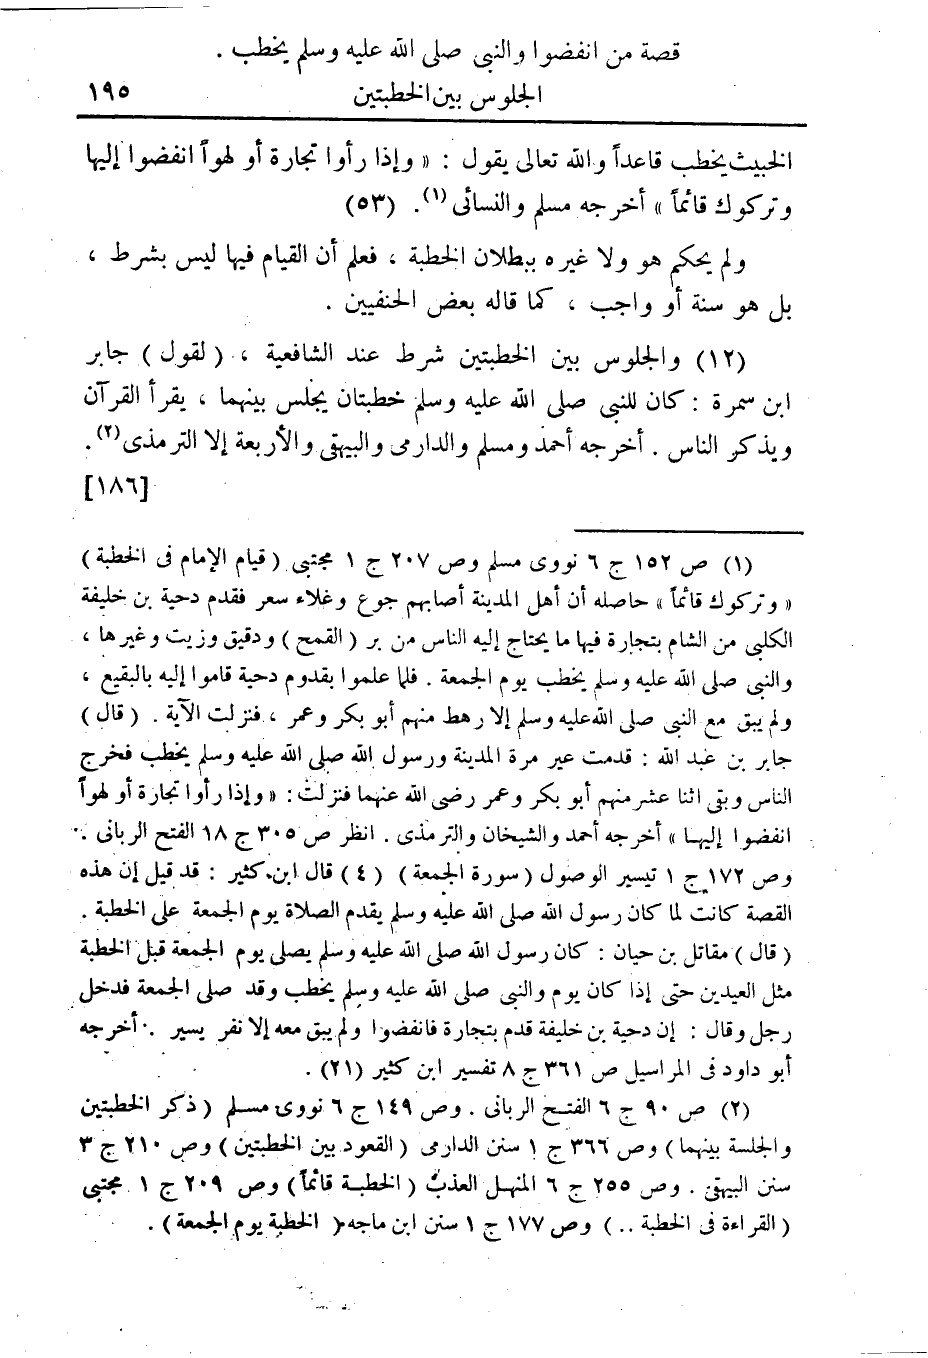 قصة من انفضوا والنبى صلى الله عليه وسلم يخطب .
الجلوس بين الخطبتين
١٩٥
الخبيث يخطب قاعداً والله تعالى يقول : « وإذا رأوا تجارة أو لهواً انفضوا إليها
وتركوك قائماً » أخرجه مسلم والنسائى (١). (٥٣)
ولم يحكم هو ولا غيره ببطلان الخطبة ، فعلم أن القيام فيها ليس بشرط ،
بل هو سنة أو واجب ، كما قاله بعض الحنفيين .
(١٢) والجلوس بين الخطبتين شرط عند الشافعية ، ( لقول ) جابر
ابن سمرة : كان للنبى صلى الله عليه وسلم خطبتان يجلس بينهما ، يقرأ القرآن
ويذكر الناس . أخرجه أحمد ومسلم والدارمى والبيهقى والأربعة إلا الترمذى (٢).
[١٨٦]
(١) ص ١٥٢ ج ٦ نووى مسلم وص ٢٠٧ ج ١ مجتبى ( قيام الإمام فى الخطبة )
« وتركوك قائماً » حاصله أن أهل المدينة أصابهم جوع وغلاء سعر فقدم دحية بن خليفة
الكلبى من الشام بتجارة فيها ما يحتاج إليه الناس من بر ( القمح ) ودقيق وزيت وغيرها ،
والنبى صلى الله عليه وسلم يخطب يوم الجمعة . فلما علموا بقدوم دحية قاموا إليه بالبقيع ،
ولم يبق مع النبى صلى الله عليه وسلم إلا رهط منهم أبو بكر وعمر ، فنزلت الآية . ( قال )
جابر بن عبد الله : قدمت عير مرة المدينة ورسول الله صلى الله عليه وسلم يخطب فخرج
الناس وبقى اثنا عشر منهم أبو بكر وعمر رضى الله عنهما فنزلت : « وإذا رأوا تجارة أو لهواً
انفضوا إليها » أخرجه أحمد والشيخان والترمذى . انظر ص ٣٠٥ ج ١٨ الفتح الربانى .
وص ١٧٢ ج ١ تيسير الوصول ( سورة الجمعة ) ( ٤ ) قال ابن كثير : قد قيل إن هذه
القصة كانت لما كان رسول الله صلى الله عليه وسلم يقدم الصلاة يوم الجمعة على الخطبة .
( قال ) مقاتل بن حيان : كان رسول الله صلى الله عليه وسلم يصلى يوم الجمعة قبل الخطبة
مثل العيدين حتى إذا كان يوم والنبى صلى الله عليه وسلم يخطب وقد صلى الجمعة فدخل
رجل وقال : إن دحية بن خليفة قدم بتجارة فانفضوا ولم يبق معه إلا نفر يسير . أخرجه
أبو داود فى المراسيل ص ٣٦١ ج ٨ تفسير ابن كثير (٢١) .
(٢) ص ٩٠ ج ٦ الفتح الربانى . وص ١٤٩ ج ٦ نووى مسلم ( ذكر الخطبتين
والجلسة بينهما ) وص ٣٦٦ ج ١ سنن الدارمى ( القعود بين الخطبتين ) وص ٢١٠ ج ٣
سنن البيهقى . وص ٢٥٥ ج ٦ المنهل العذب ( الخطبة قائماً ) وص ٢٠٩ ج ١ مجتبى
( القراءة فى الخطبة .. ) وص ١٧٧ ج ١ سنن ابن ماجه ( الخطبة يوم الجمعة ) .